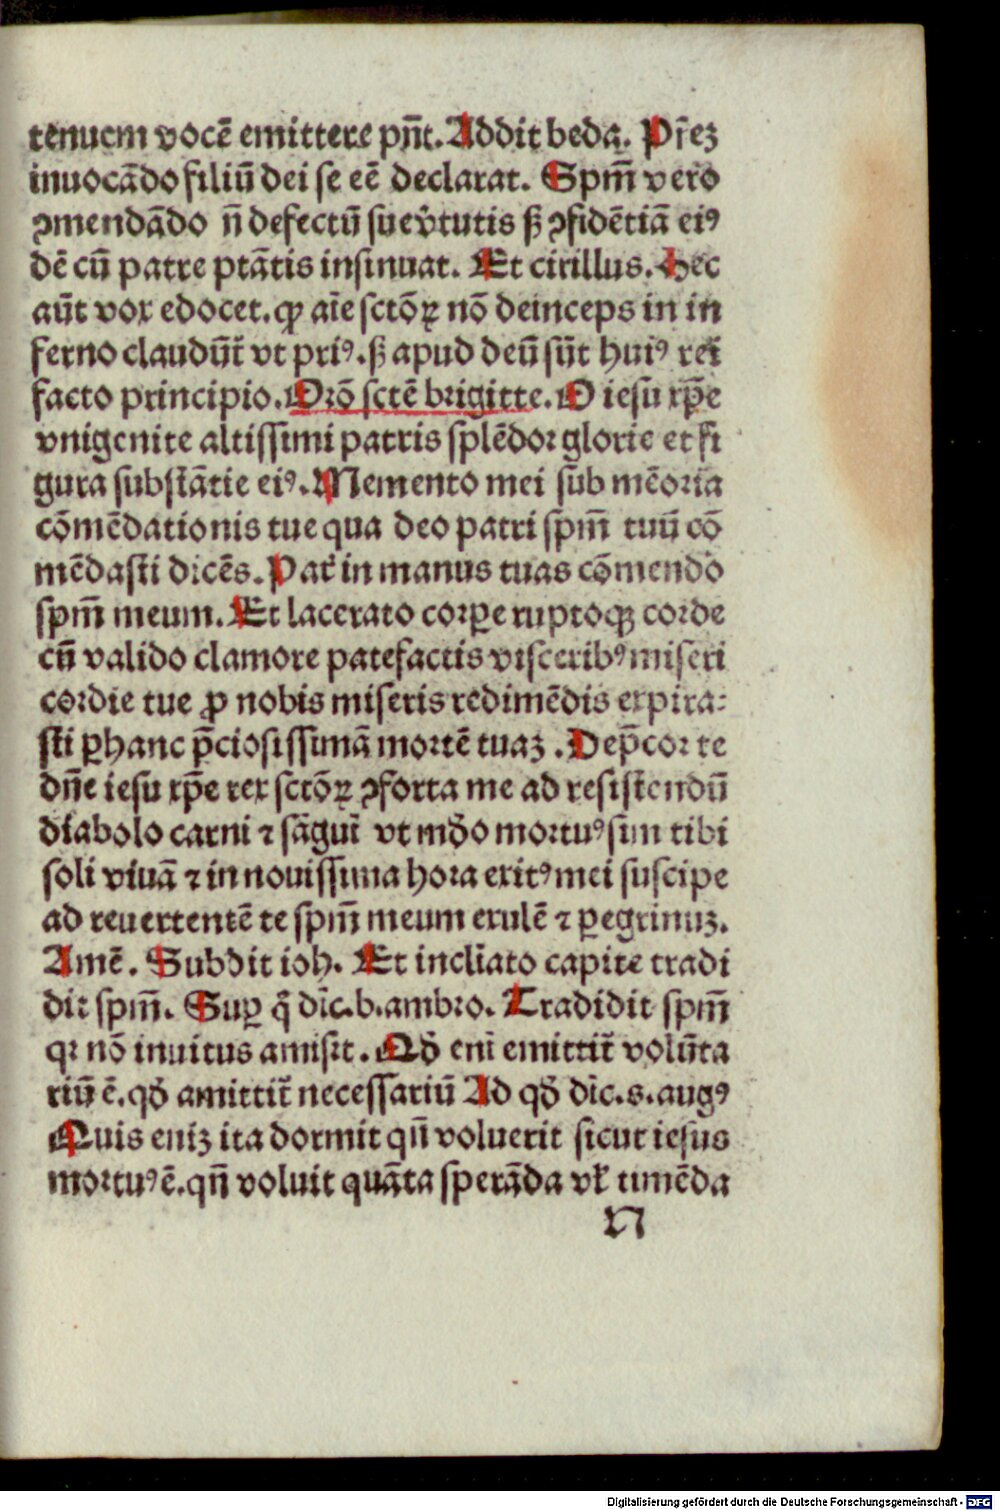 tenuem vocē emittere pn̄t. Addit beda. Pr̄eʒ
inuocādo filiū dei se eē declarat. Spm̄ vero
ꝯmendādo n̄ defectū sue v̓tutis sꝫ ꝯfidētiā eiꝰ
dē cū patre ptātis insinuat. Et cirillus. Hec
aūt vox edocet. ꝙ aīe sctōꝝ nō deinceps in in
ferno claudūt᷑ vt priꝰ. sꝫ apud deū sūt huiꝰ rei
facto principio. Orō sctē brigitte. O iesu xp̄e
vnigenite altissimi patris splēdor glorie et fi
gura substātie eiꝰ. Memento mei sub mēoria
cōmēdationis tue qua deo patri spm̄ tuū cō
mēdasti dicēs. Pat̓ in manus tuas cōmendo
spm̄ meum. Et lacerato corꝑe ruptoqꝫ corde
cū valido clamore patefactis visceribꝰ miseri
cordie tue ꝓ nobis miseris redimēdis expira:
sti ꝑ hanc p̄ciosissimā mortē tuaʒ. Dep̄cor te
dn̄e iesu xp̄e rex sctōꝝ ꝯforta me ad resistendū
diabolo carni ⁊ sāgui᷑ vt mūdo mortuꝰ sim tibi
soli viuā ⁊ in nouissima hora exitꝰ mei suscipe
ad reuertentē te spm̄ meum exulē ⁊ ꝑegrinuʒ.
Amē. Subdit ioh. Et inclīato capite tradi
dit spm̄. Suꝑ q̄ dīc. b. ambro. Tradidit spm̄
qꝛ nō inuitus amisit. Qd̓ eni᷑ emittit᷑ volūta
riū ē. qd̓ amittit᷑ necessariū Ad qd̓ dīc. s. augꝰ
Quis eniʒ ita dormit qn̄ voluerit sicut iesus
mortuꝰ ē. qn̄ voluit quāta sperāda vł timēda
N
Digitalisierung gefördert durch die Deutsche Forschungsgemeinschaft - DFG